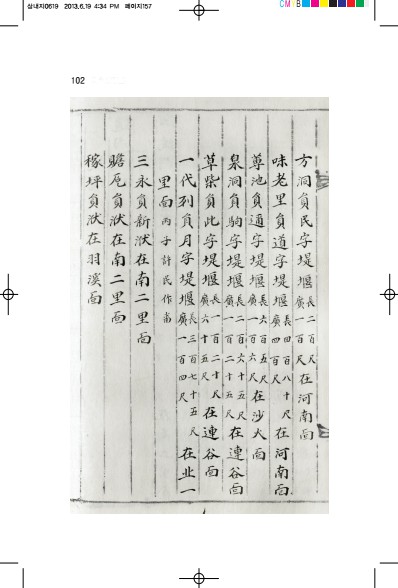 삼내지0619 2013.6.19 4:34 PM 페이지157
CM B
102
方洞員民字堤堰長二百尺廣一百尺在河南面
味老里員道字堤堰長四百八十尺廣四百尺在河南面
蓴池員通字堤堰長六百五尺廣一百六尺在沙火面
泉洞員駒字堤堰長二百六十五尺廣一百二十五尺在連谷面
草柴員此字堤堰長一百二十尺廣六十五尺在連谷面
一代列員月字堤堰長三百七十五尺廣一百四尺在北一
里面丙子許民作畓
三永員新洑在南二里面
贍危員洑在南二里面
稼坪員洑在羽溪面